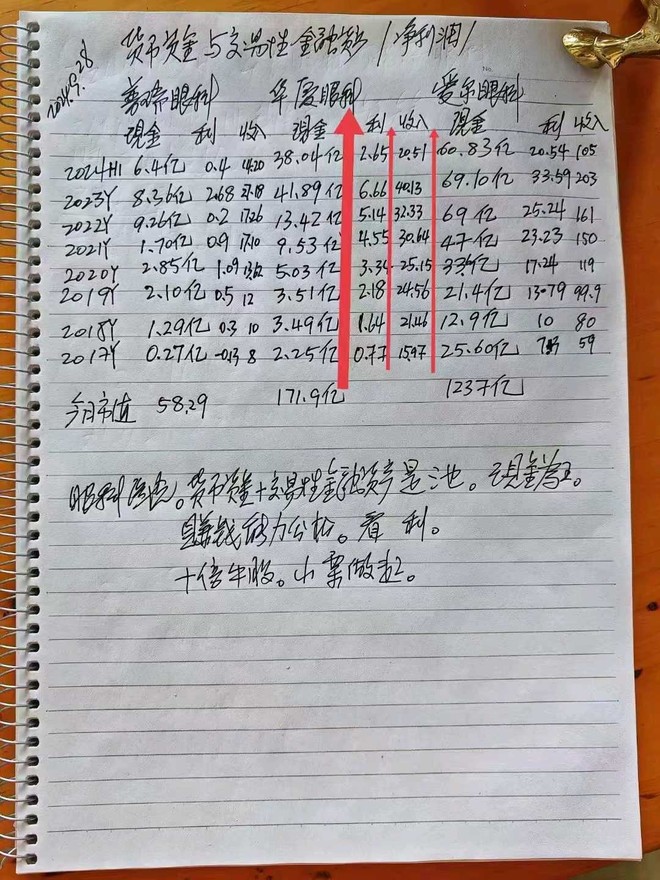 2024.9.28
货币资金与交易性金融资产/净利润/
普瑞眼科 华厦眼科 爱尔眼科
现金 利 收入 现金 利 收入 现金 利 收入
2024H1 6.4亿 0.4 14.20 38.04亿 2.65 20.51 60.83亿 20.54 105
2023Y 8.36亿 2.68 27.18 41.89亿 6.66 40.13 69.10亿 33.59 203
2022Y 9.26亿 0.2 17.26 13.42亿 5.14 32.33 69亿 25.24 161
2021Y 1.70亿 0.9 17.10 9.53亿 4.55 30.64 47亿 23.23 150
2020Y 2.85亿 1.09 13.62 5.03亿 3.34 25.15 亿 17.24 119
2019Y 2.10亿 0.5 12 3.51亿 2.18 24.56 21.4亿 13.79 99.9
2018Y 1.29亿 0.3 10 3.49亿 1.64 21.46 12.9亿 10 80
2017Y 0.27亿 -0.13 8 2.25亿 0.77 15.97 25.60亿 59
今日市值 58.29 171.9亿 1237亿
眼科 。货币资金+交易性金融资产是池。现金为王。
赚钱能力分析。看利。
十倍牛股。小票做起。